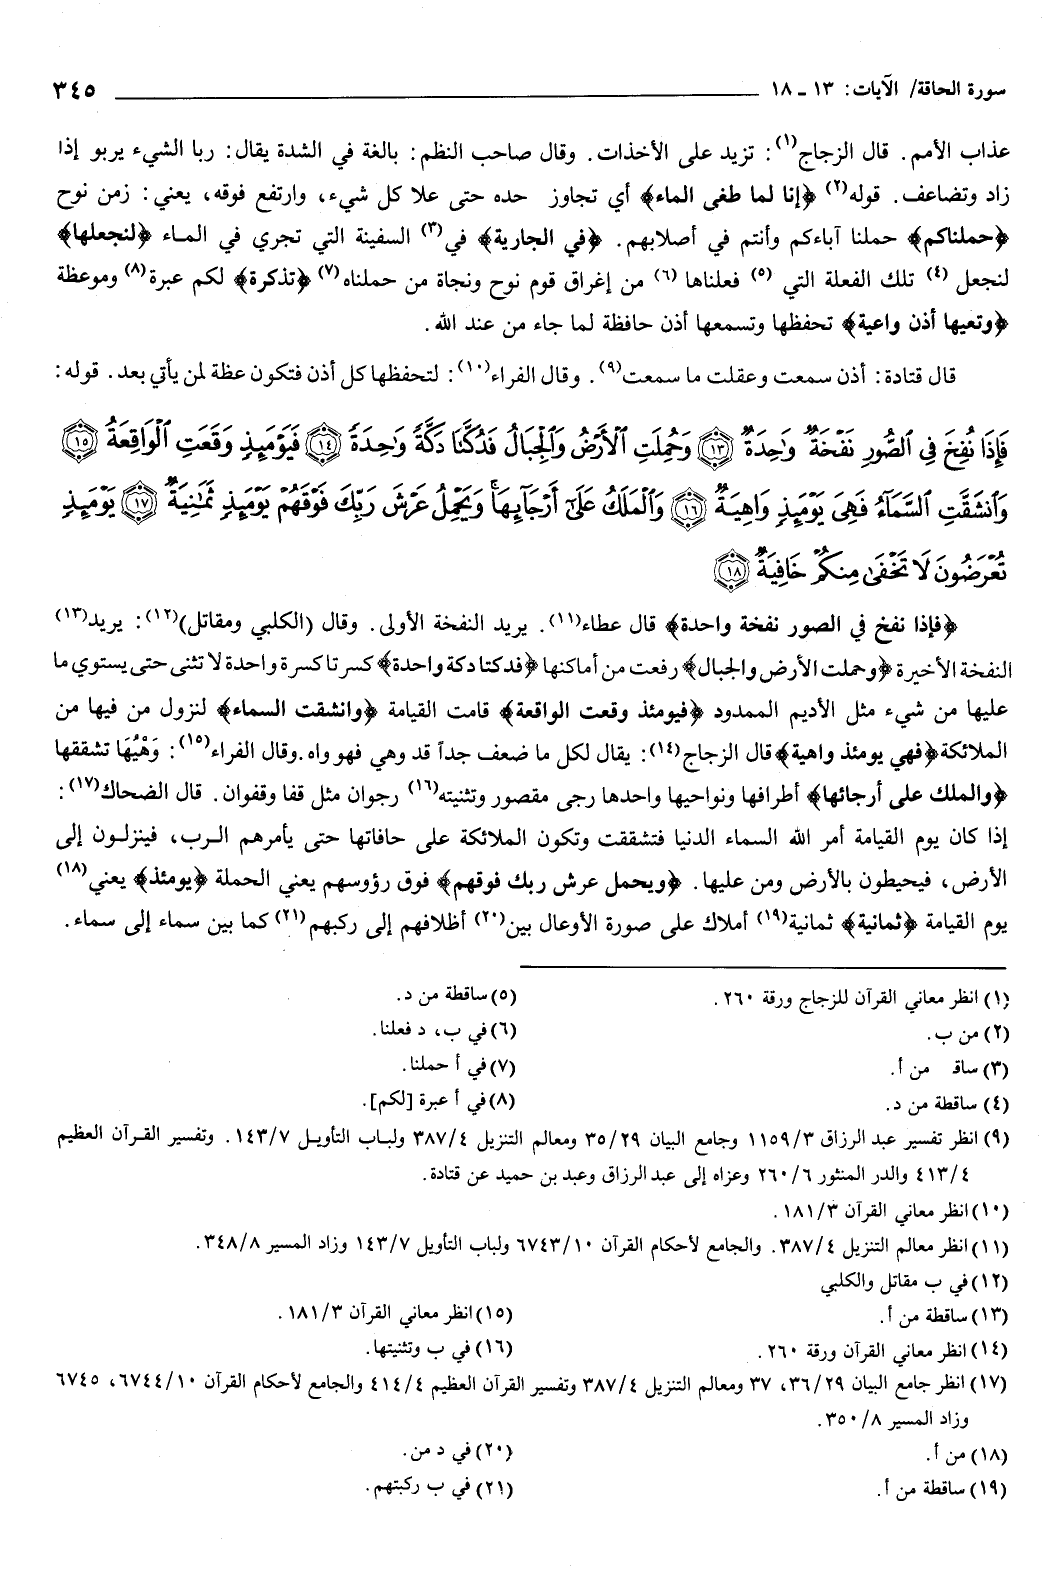 سورة الحاقة/ الآيات: ١٣ ـ ١٨ ٣٤٥
عذاب الأمم. قال الزجاج(١): تزيد على الأخذات. وقال صاحب النظم: بالغة في الشدة يقال: ربا الشيء يربو إذا
زاد وتضاعف. قوله(٢) ﴿إنا لما طغى الماء﴾ أي تجاوز حده حتى علا كل شيء، وارتفع فوقه، يعني: زمن نوح
﴿حملناكم﴾ حملنا آباءكم وأنتم في أصلابهم. ﴿في الجارية﴾ في(٣) السفينة التي تجري في الماء ﴿لنجعلها﴾
لنجعل (٤) تلك الفعلة التي (٥) فعلناها (٦) من إغراق قوم نوح ونجاة من حملناه(٧) ﴿تذكرة﴾ لكم عبرة(٨) وموعظة
﴿وتعيها أذن واعية﴾ تحفظها وتسمعها أذن حافظة لما جاء من عند الله.
قال قتادة: أذن سمعت وعقلت ما سمعت(٩). وقال الفراء(١٠): لتحفظها كل أذن فتكون عظة لمن يأتي بعد. قوله:
فَإِذَا نُفِخَ فِي ٱلصُّورِ نَفْخَةٌ وَٰحِدَةٌ ﴿١٣﴾ وَحُمِلَتِ ٱلْأَرْضُ وَٱلْجِبَالُ فَدُكَّتَا دَكَّةً وَٰحِدَةً ﴿١٤﴾ فَيَوْمَئِذٍ وَقَعَتِ ٱلْوَاقِعَةُ ﴿١٥﴾
وَٱنشَقَّتِ ٱلسَّمَآءُ فَهِىَ يَوْمَئِذٍ وَاهِيَةٌ ﴿١٦﴾ وَٱلْمَلَكُ عَلَىٰٓ أَرْجَآئِهَا وَيَحْمِلُ عَرْشَ رَبِّكَ فَوْقَهُمْ يَوْمَئِذٍ ثَمَٰنِيَةٌ ﴿١٧﴾ يَوْمَئِذٍ
تُعْرَضُونَ لَا تَخْفَىٰ مِنكُمْ خَافِيَةٌ ﴿١٨﴾
﴿فإذا نفخ في الصور نفخة واحدة﴾ قال عطاء(١١). يريد النفخة الأولى. وقال (الكلبي ومقاتل)(١٢): يريد(١٣)
النفخة الأخيرة ﴿وحملت الأرض والجبال﴾ رفعت من أماكنها ﴿فدكتا دكة واحدة﴾ كسرتا كسرة واحدة لا تثنى حتى يستوي ما
عليها من شيء مثل الأديم الممدود ﴿فيومئذ وقعت الواقعة﴾ قامت القيامة ﴿وانشقت السماء﴾ لنزول من فيها من
الملائكة ﴿فهي يومئذ واهية﴾ قال الزجاج(١٤): يقال لكل ما ضعف جداً قد وهي فهو واه. وقال الفراء(١٥): وَهْيُهَا تشققها
﴿والملك على أرجائها﴾ أطرافها ونواحيها واحدها رجى مقصور وتثنيته(١٦) رجوان مثل قفا وقفوان. قال الضحاك(١٧):
إذا كان يوم القيامة أمر الله السماء الدنيا فتشققت وتكون الملائكة على حافاتها حتى يأمرهم الرب، فينزلون إلى
الأرض، فيحيطون بالأرض ومن عليها. ﴿ويحمل عرش ربك فوقهم﴾ فوق رؤوسهم يعني الحملة ﴿يومئذ﴾ يعني(١٨)
يوم القيامة ﴿ثمانية﴾ ثمانية(١٩) أملاك على صورة الأوعال بين(٢٠) أظلافهم إلى ركبهم(٢١) كما بين سماء إلى سماء.
(١) انظر معاني القرآن للزجاج ورقة ٢٦٠.
(٢) من ب.
(٣) ساقـ من أ.
(٤) ساقطة من د.
(٥) ساقطة من د.
(٦) في ب، د فعلنا.
(٧) في أ حملنا.
(٨) في أ عبرة [لكم].
(٩) انظر تفسير عبد الرزاق ١١٥٩/٣ وجامع البيان ٣٥/٢٩ ومعالم التنزيل ٣٨٧/٤ ولباب التأويل ١٤٣/٧. وتفسير القرآن العظيم
٤١٣/٤ والدر المنثور ٢٦٠/٦ وعزاه إلى عبد الرزاق وعبد بن حميد عن قتادة.
(١٠) انظر معاني القرآن ١٨١/٣.
(١١) انظر معالم التنزيل ٣٨٧/٤. والجامع لأحكام القرآن ٦٧٤٣/١٠ ولباب التأويل ١٤٣/٧ وزاد المسير ٣٤٨/٨.
(١٢) في ب مقاتل والكلبي
(١٣) ساقطة من أ.
(١٤) انظر معاني القرآن ورقة ٢٦٠.
(١٥) انظر معاني القرآن ١٨١/٣.
(١٦) في ب وتثنيتها.
(١٧) انظر جامع البيان ٣٦/٢٩، ٣٧ ومعالم التنزيل ٣٨٧/٤ وتفسير القرآن العظيم ٤١٤/٤ والجامع لأحكام القرآن ٦٧٤٤/١٠، ٦٧٤٥
وزاد المسير ٣٥٠/٨.
(١٨) من أ.
(١٩) ساقطة من أ.
(٢٠) في د من.
(٢١) في ب ركبتهم.